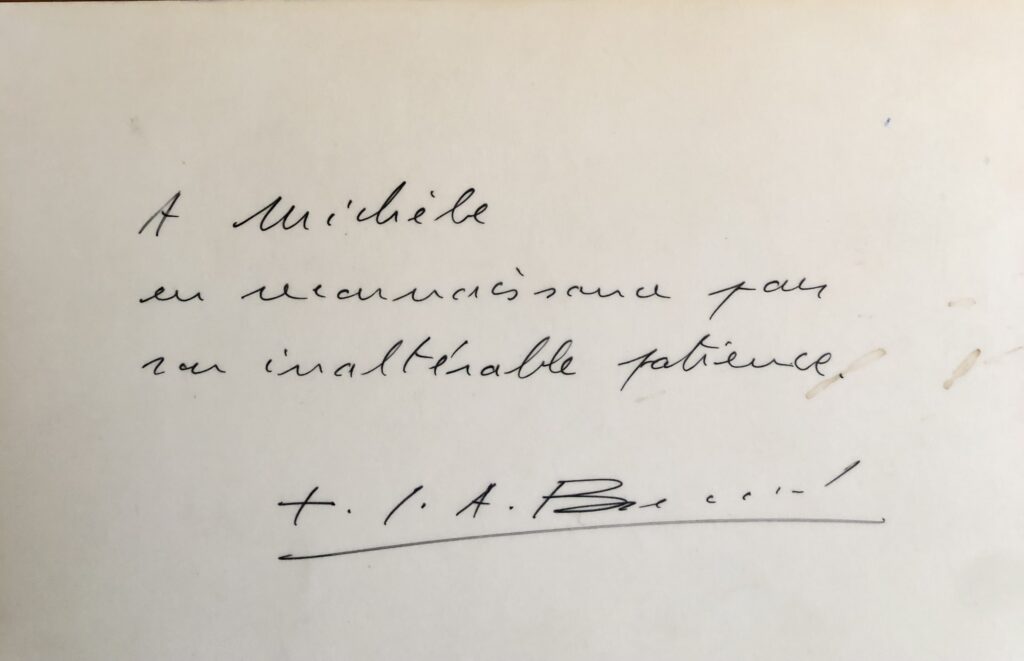 A Michèle
en reconnaissance pour
son inaltérable patience.
+. J. A.